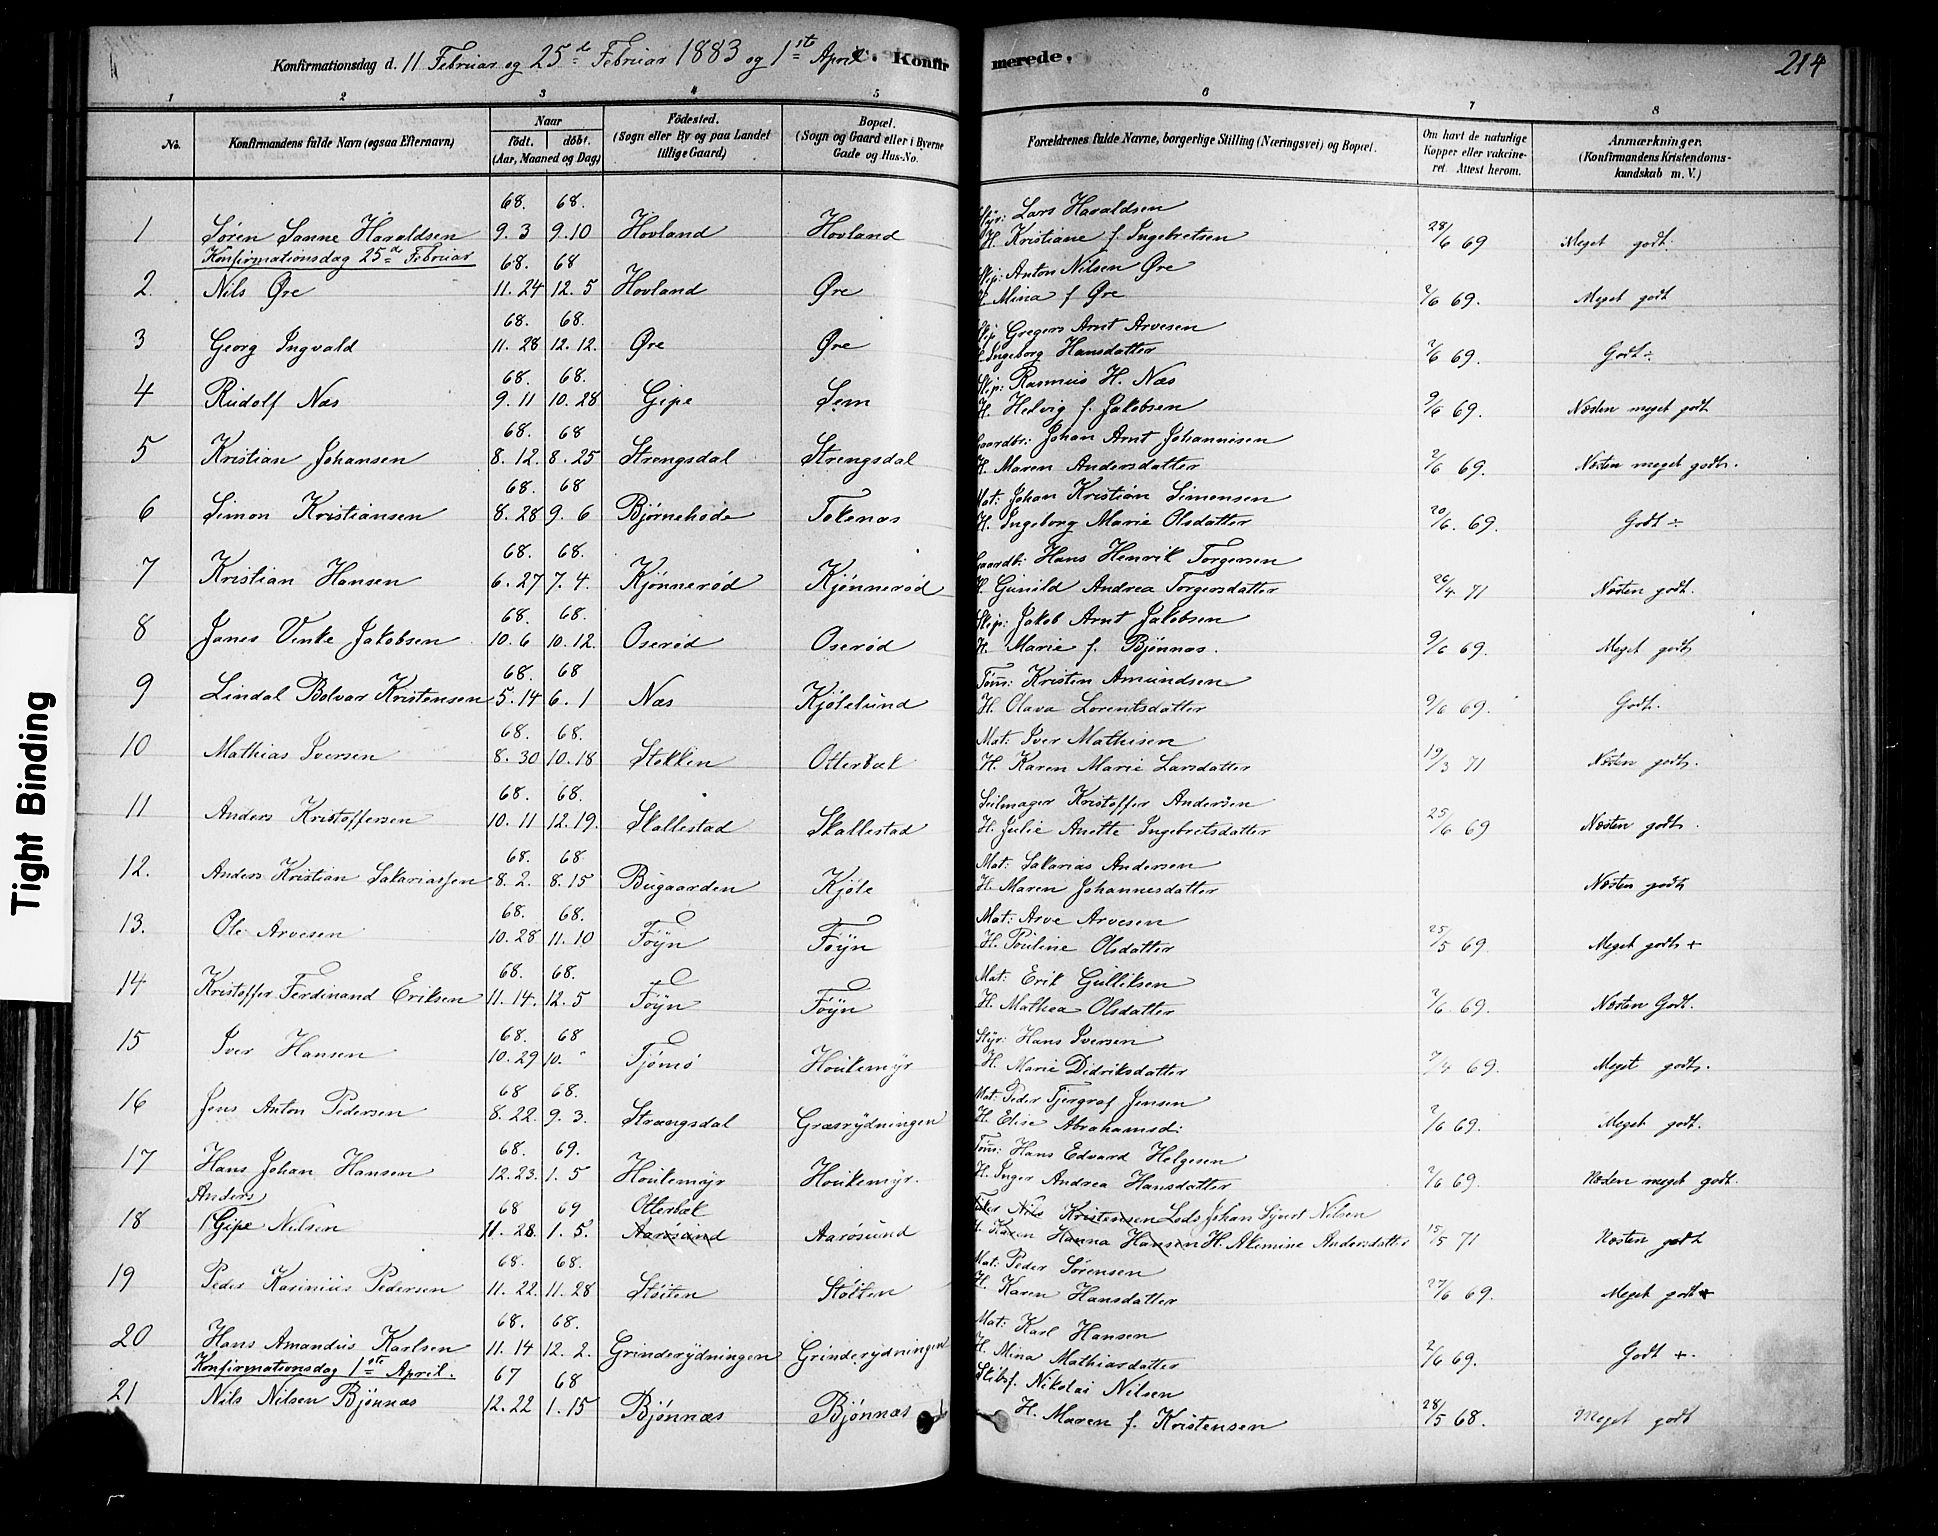 Konfirmationsdag d. 11 Februar og 25de Februar 1883 og 1ste April C. Konfirmerede. 214
1 2 3 4 5 6 7 8
No. Konfirmandens fulde Navn (ogsaa Efternavn) Naar født. døbt. (Aar, Maaned og Dag) Fødested. (Sogn eller By og paa Landet tillige Gaard) Bopæl. (Sogn og Gaard eller i Byerne Gade og Hus-No. Forældrenes fulde Navne, borgerlige Stilling (Næringsvei) og Bopæl. Om havt de naturlige Kopper eller vakcineret. Attest herom. Anmærkninger. (Konfirmandens Kristendomskundskab m. V.)
68. 68. Styr: Lars Haraldsen
1 Søren Sanne Haraldsen 9. 3 9. 10 Hovland Hovland H. Kristiane f. Ingebretsen 28/6 69 Meget godt.
Konfirmationsdag 25de Februar
68. 68 Skip: Anton Nilsen Øre
2. Nils Øre 11. 24 12. 5 Hovland Øre H. Mina f Øre 2/6 69. Meget godt
68. 68. Skip Gregers Arnt Arvesen
3 Georg Ingvald 11. 28 12. 12. Øre Øre H. Ingeborg Hansdatter 2/6 69. Godt ÷
68. 68. Skip: Rasmus H. Næs
4 Rudolf Næs 9. 11 10. 28 Gipe Sem H. Hedvig f. Jakobsen 9/6 69. Næsten meget godt
68. 68 Gaardbr: Johan Arnt Johannisen
5 Kristian Johansen 8. 12. 8. 25 Strengsdal Strengsdal H. Maren Andersdatter 2/6 69. Næsten meget godt.
68. 68 Mat: Johan Kristian Simonsen
6 Simon Kristiansen 8. 28 9. 6 Bjørnehode Tokenæs H. Ingeborg Marie Olsdatter 20/6. 69. Godt ÷
68. 68. Gaardb: Hans Henrik Torgersen
7 Kristian Hansen 6. 27 7. 4. Kjønnerød Kjønnerød H. Gunild Andrea Torgersdatter 26/4 71 Næsten godt.
68. 68. Skip: Jakob Arnt Jakobsen
8 Janes Vinke Jakobsen 10. 6 10. 12. Oserød Oserød H. Marie f. Bjønnæs. 9/6 69. Meget godt
68. 68 Tøm: Kristen Amundsen
9 Lindal Bolvar Kristensen 5. 14 6. 1 Næs Kjølelund H. Olava Lorentsdatter 9/6 69. Godt.
68. 68. Mat: Iver Mathisen
10 Mathias Iversen 8. 30 10. 18 Stokken Otterbæk H. Karen Marie Larsdatter 19/3 71 Næsten godt.
68. 68. Seilmager Kristoffer Andersen
11 Anders Kristoffersen 10. 11 12. 19. Skallestad Skallestad H. Julie Anette Ingebretsdatter 25/6 69 Næsten godt.
68. 68 Mat: Sakarias Andersen
12. Anders Kristian Sakariassen 8. 2. 8. 15 Bugaarden Kjøle H. Maren Johannesdatter Næsten godt
68. 68. Mat: Arve Arvesen
13. Ole Arvesen 10. 28 11. 10 Føyn Føyn H. Pouline Olsdatter 25/5 69. Meget godt +
68. 68. Mat: Erik Gulliksen
14 Kristoffer Ferdinand Eriksen 11. 14. 12. 5 Føyn Føyn H. Mathea Olsdatter 2/6 69. Næsten Godt.
68. 68 Styr: Hans Iversen
15 Iver Hansen 10. 29 10. " Tjømø Houkemyr H. Marie Didriksdatter 7/4 69. Meget godt.
68 68. Mat: Peder Tjergraf Jensen
16 Jens Anton Pedersen 8. 22. 9. 3. Strængsdal Græsrydningen H. Elise Abrahamsd: 2/6 69. Meget godt.
68. 69. Tøm: Hans Edvard Helgesen
17 Hans Johan Hansen 12. 23. 1. 5 Houkemyr Houkemyr. H. Inger Andrea Hansdatter 2/6 69. Næsten meget godt.
Anders 68 69 Otterbæk Nils Kristensen Lods Johan Sivert Nilsen
18 Gipe Nilsen 11. 28. 1. 5. Aarøsund Aarøsund H. Karen Hanna Hansen H. Alemine Andersdatter 15/5 71 Næsten godt
68. 68. Mat: Peder Sørensen
19 Peder Kasinius Pedersen 11. 22. 11. 28 Støiten Støiten H. Karen Hansdatter 27/6 69. Meget godt +
68. 68. Mat: Karl Hansen
20 Hans Amandus Karlsen 11. 14 12. 2. Grinderydningen Grinderydningen H. Mina Mathiasdatter 2/6 69. Godt +.
Konfirmationsdag 1ste April.
67 68 Skibsf. Nikolai Nilsen
21 Nils Nilsen Bjønnæs 12. 22 1. 15 Bjønnæs Bjønnæs H. Maren f. Kristensen 28/5 68. Meget godt
Tight Binding